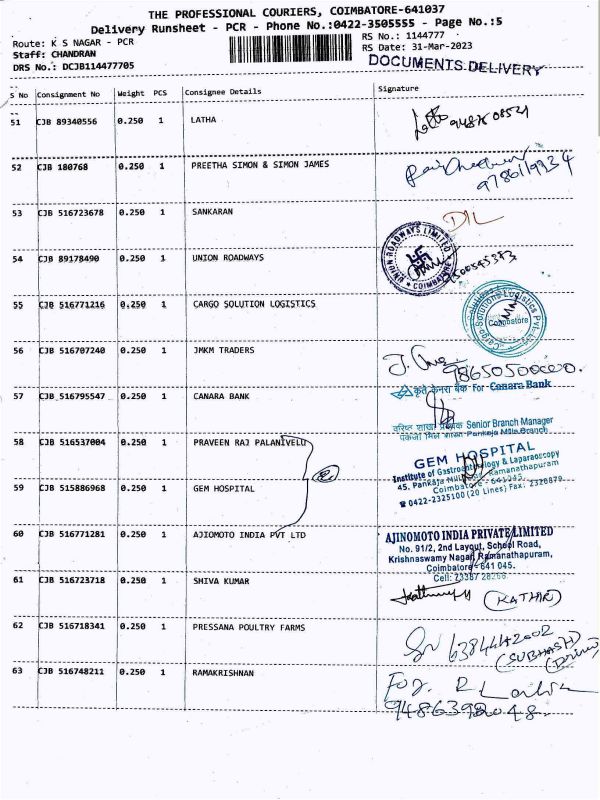 THE PROFESSIONAL COURIERS, COIMBATORE-641037
Delivery Runsheet - PCR - Phone No.:0422-3505555 - Page No.:5
Route: K S NAGAR - PCR
RS No.: 1144777
Staff: CHANDRAN
RS Date: 31-Mar-2023
DRS No.: DCJB114477705
DOCUMENTS DELIVERY
S No Consignment No Weight PCS Consignee Details Signature
51 CJB 89340556 0.250 1 LATHA
52 CJB 180768 0.250 1 PREETHA SIMON & SIMON JAMES
9786119934
53 CJB 516723678 0.250 1 SANKARAN
D/L
54 CJB 89178490 0.250 1 UNION ROADWAYS
UNION ROADWAYS LIMITED
COIMBATORE
55 CJB 516771216 0.250 1 CARGO SOLUTION LOGISTICS
Cargo Solutions Logistics Pvt. Ltd.
Coimbatore
56 CJB 516707240 0.250 1 JMKM TRADERS
57 CJB 516795547 0.250 1 CANARA BANK
कृते केनरा बैंक For Canara Bank
वरिष्ठ शाखा प्रबंधक Senior Branch Manager
पंकजा मिल शाखा Pankaja Mills Branch
58 CJB 516537004 0.250 1 PRAVEEN RAJ PALANIVELU
59 CJB 515886968 0.250 1 GEM HOSPITAL
GEM HOSPITAL
Institute of Gastroenterology & Laparoscopy
45, Pankaja Mill Road, Ramanathapuram
Coimbatore - 641045.
☎ 0422-2325100 (20 Lines) Fax: 2320879
60 CJB 516771281 0.250 1 AJIOMOTO INDIA PVT LTD
AJINOMOTO INDIA PRIVATE LIMITED
No. 91/2, 2nd Layout, School Road,
Krishnaswamy Nagar, Ramanathapuram,
Coimbatore - 641 045.
Cell: 73387 28266
61 CJB 516723718 0.250 1 SHIVA KUMAR
(KATHIR)
62 CJB 516718341 0.250 1 PRESSANA POULTRY FARMS
6384442002
(SUBHASH)
63 CJB 516748211 0.250 1 RAMAKRISHNAN
9486398048.